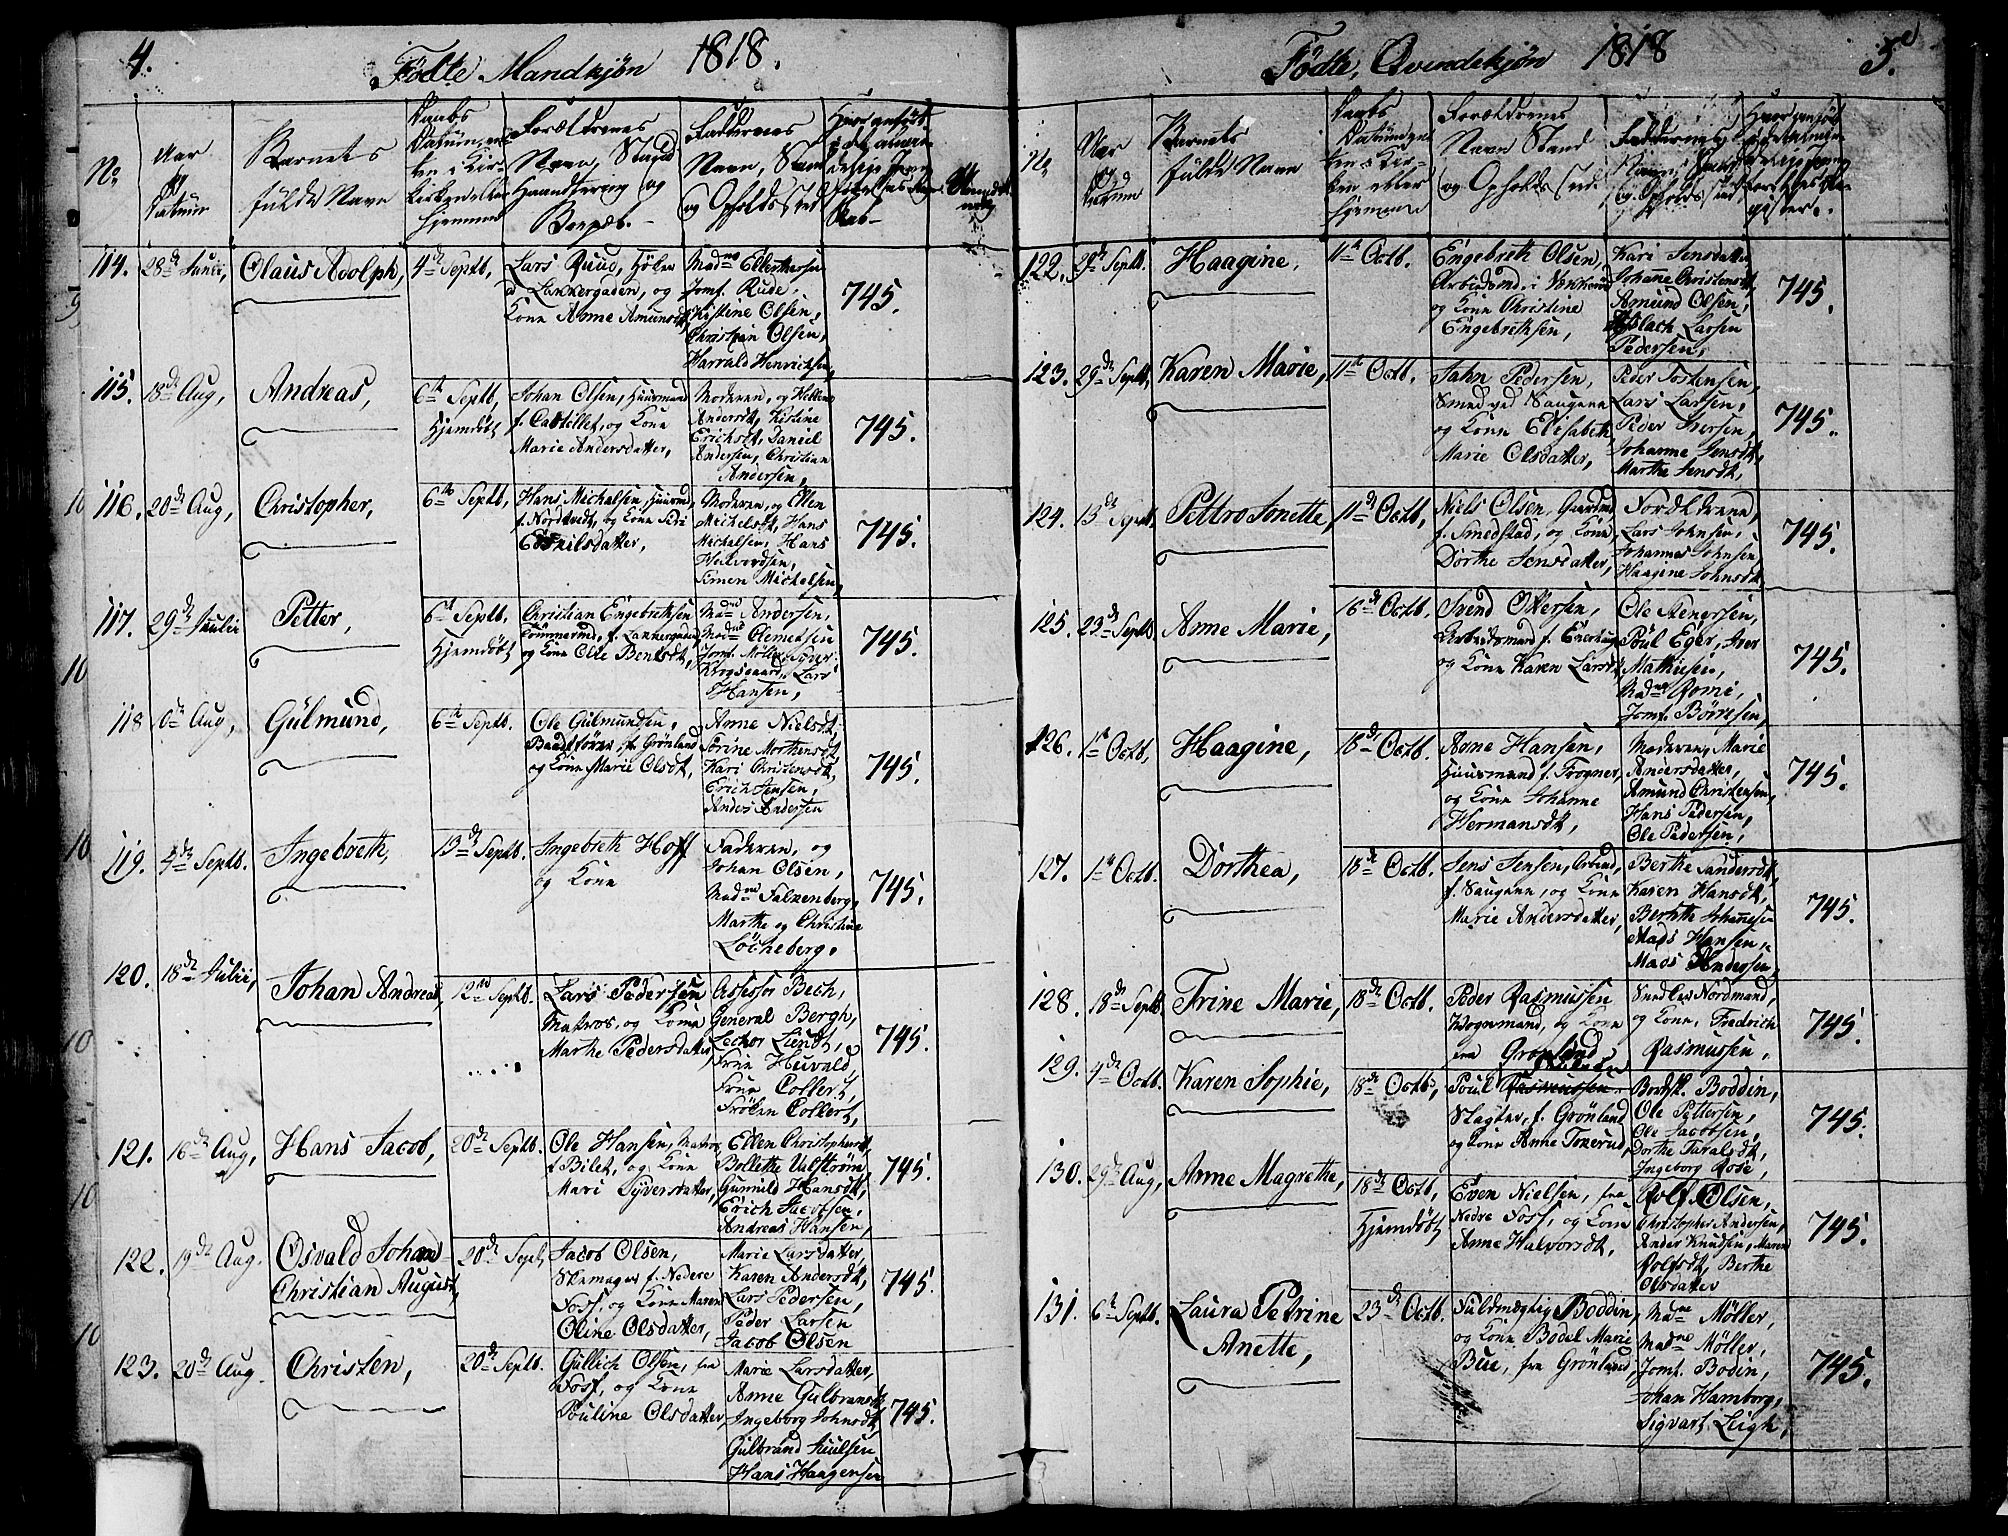 4.
Födte Mandkjön 1818.
No
Aar
Datum
Barnets
fulde Navn
Daabs
Forældrenes
Navn, Stand
Haandtering og
Boepæl.
Faddernes
Navn, Stand
og Opholds Sted
114.
28de Junii,
Claus Adolph,
4de Septb,
Lars Ruud,
Lakkergaden, og
Kone Anne Amundsdt,
Jomf. Rude,
Kistine Olsen,
Christian Olsen,
Harrald Henrichsen,
745.
115.
18de Aug,
Andreas,
6te Septb,
Hjemdöbt
Johan Olsen, Huusmand
f. Castellet, og Kone
Marie Andersdatter,
Moderen, og Hellene
Andersdt, Kistine
Erichsdt, Daniel
Andersen, Christian
Andersen,
745.
116.
20de Aug,
Christopher,
6te Septb,
Hans Michelsen, Huusmd
og Kone Siri
Eskilsdatter,
Moderen, og Ellen
Michelsdt, Hans
Michelsen, Hans
Halvordsen,
Simen Michelsen,
745.
117.
29de Julii
Petter,
6te Septb,
Hjemdöbt
Christian Engebrethsen
f. Lakkergaden,
og Kone Olle Bentsdt,
Madme Andersen,
Madme Clemetsen
Jomf. Möller,
Krogsgaard, Lars
Hansen,
745.
118
6de Aug,
Gülmund,
6te Septb.
Ole Gulmundsen,
Baadsförer, f. Grönland
og Kone Marie Olsdt,
Anne Nielsdt,
Sörine Morthensdt
Kari Christensdt,
Erich Jensen,
Anders Andersen
745.
119.
4de Septb.
Ingebreth,
13de Septb.
Ingebreth Hoff
og Kone
Faderen, og
Johan Olsen,
Madme Salzenberg,
Marthe og Christine
Löcheberg.
745.
120.
18de Julii,
Johan Andreas,
12te Septb.
Lars Pedersen
Matros, og Kone
Marthe Pedersdatter,
Assessor Bech,
General Bergh,
Lector Lundt,
Frue Huvald,
Frue Collert,
Frölen Collert,
745.
121.
16de Aug,
Hans Jacob,
20de Septb.
Ole Hansen, Matros,
f. Bilet, og Kone
Mari Syversdatter,
Ellen Christophersdt,
Bollette Valström,
Gunnild Hansdt,
Erich Jacobsen,
Andreas Hansen,
745.
122.
19de Aug.
Osvald Johan
Christian August,
20de Sept,
Jacob Olsen,
Skomager f. Nedre
Foss, og Kone Maren
Oline Olsdatter,
Marie Larsdatter,
Karen Andersdt,
Lars Pedersen,
Peder Larsen
Jacob Olsen
745.
123.
20de Aug.
Christen,
20de Septb.
Gullich Olsen, fra
Foss, og Kone
Pouline Olsdatter
Marie Larsdatter,
Anne Gulbransdt
Ingeborg Johnsdt,
Gulbrand Juulsen
Hans Haagensen
745.
Födte, Qvindekjön 1818
5.
No
Aar
og
Datum
Barnets
fulde Navn
Daabs
Forældrenes
Navn Stand
og Opholds Sted
Faddernes
Navn, Stand
og Opholds Sted
122.
29de Septb.
Haagine,
11te Octb.
Engebreth Olsen,
Arbeidsmd. i
og Kone Christine
Engebrethsen,
Kari Jensdatter
Johanne Christensdt,
Amund Olsen,
Aslach Larsen
Pedersen,
745.
123.
29de Septb,
Karen Marie,
11te Octb.
John Pedersen,
Smed ved Saugene
og Kone Elisabeth
Marie Olsdatter,
Peder Tostensen,
Lars Larsen,
Peder Iversen,
Johanne Jensdt,
Marthe Jensdt,
745.
124.
15de Septb,
Pettro Jonette,
11te Octb,
Niels Olsen, Gaardmd
f. Smedstad, og Kone
Dorthe Jensdatter,
Forældrene,
Lars Johnsen,
Johannes Johnsen
Haagine Johnsdt,
745.
125.
23de Septb.
Anne Marie,
16de Octb.
Svend Ottersen,
Arbeidsmand f. Enerhaug
og Kone Karen Larsdt,
Ole Aenersen,
Poul Eger, Iver
Mathiesen,
Madme Romi,
Jomf. Börresen,
745.
126.
1te Octb,
Haagine,
18de Octb.
Arne Hansen,
Huusmand f. Frogner,
og Kone Johanne
Hermansdt,
Moderen, Marie
Andersdatter,
Amund Christensen,
Hans Pedersen,
Ole Pedersen,
745.
127.
1te Octb.
Dorthea,
18de Octb.
Jens Jensen, Arbmd,
f. Saugene, og Kone
Marie Andersdatter,
Berthe Sandersdt,
Karen Hansdt,
Berthe Johannesen
Mads Hansen,
Mads Andersen,
745.
128.
18de Septb
Trine Marie,
18de Octb.
Peder Rasmussen
Vognmand, og Kone
fra Grönland,
Nordmand,
og Kone, Fredrich
Rasmussen,
745.
129.
4de Octb.
Karen Sophie,
18de Octb.
Poul Rasmussen
Slagter, f. Grönland
og Kone Anne Tokerud,
Boddin,
Ole Pettersen,
Ole Jacobsen,
Dorthe Taralsdt,
Ingeborg Rose,
745.
130.
29de Aug,
Anne Magrethe,
18de Octb,
Hjemdöbt
Even Nielsen, fra
Nedre Foss, og Kone
Anne Halvorsdt,
Rolf Olsen,
Christopher Andersen,
Ander Knudsen, Maren
Rolfsdt, Berthe
Olsdatter
745.
131.
6te Septb.
Laura Petrine
Anette,
23de Octb.
Fuldmægtig Boddin,
og Kone Bodel Marie
Bue, fra Grönland,
Mame Möller,
Madme Möller,
Jomf. Bodin,
Johan Hamborg,
Sigvart Leigh,
745.